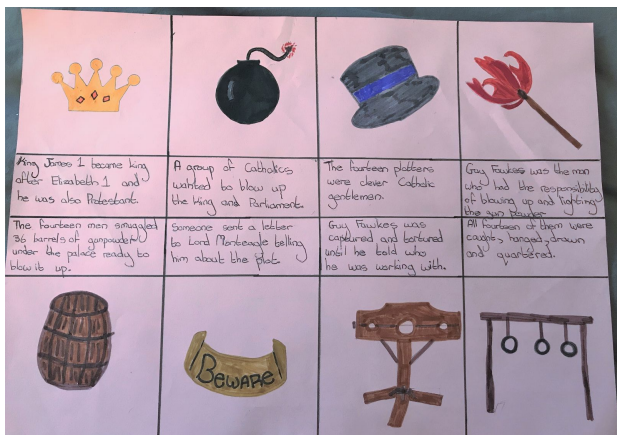 King James 1 became king
after Elizabeth 1 and
he was also Protestant.
A group of Catholics
wanted to blow up
the King and Parliament.
The fourteen plotters
were clever Catholic
gentlemen.
Guy Fawkes was the man
who had the responsibility
of blowing up and lighting
the gun powder
The fourteen men smuggled
36 barrels of gunpowder
under the palace ready to
blow it up.
Someone sent a letter
to Lord Monteagle telling
him about the plot.
Guy Fawkes was
captured and tortured
until he told who
he was working with.
All fourteen of them were
caught, hanged, drawn
and quartered.
BEWARE!